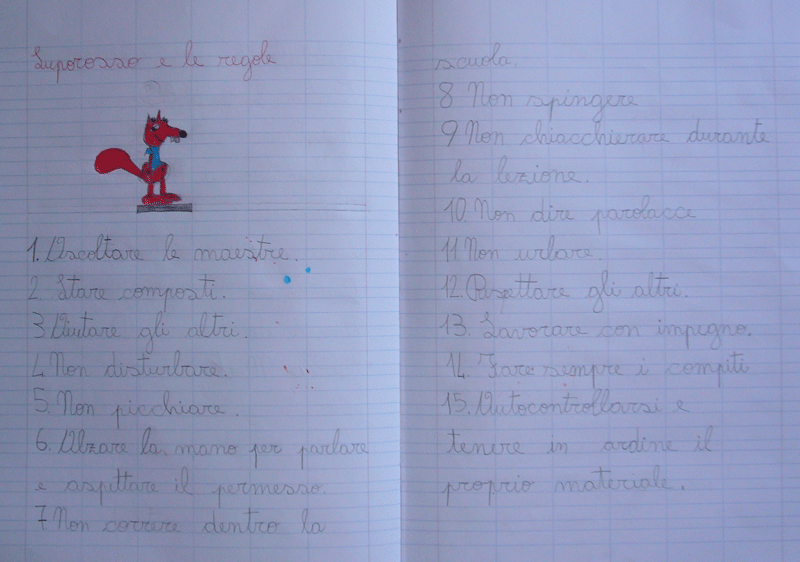 Luporosso e le regole
1. Ascoltare le maestre.
2. Stare composti.
3 Aiutare gli altri.
4 Non disturbare.
5. Non picchiare.
6. Alzare la mano per parlare
e aspettare il permesso.
7 Non correre dentro la
scuola.
8 Non spingere
9 Non chiacchierare durante
la lezione.
10 Non dire parolacce
11 Non urlare.
12. Rispettare gli altri.
13. Lavorare con impegno.
14. Fare sempre i compiti
15. Autocontrollarsi e
tenere in ordine il
proprio materiale.